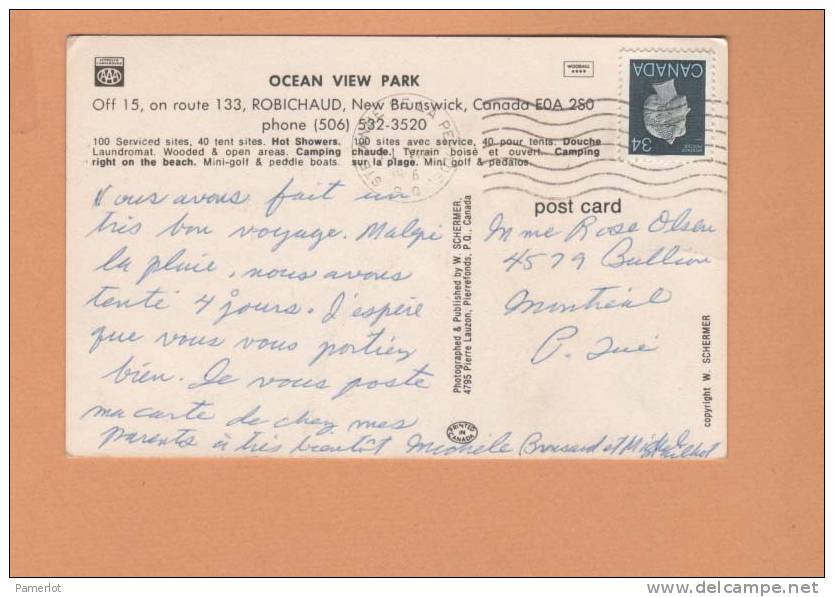 APPROVED
AAA
WOODALL
OCEAN VIEW PARK
Off 15, on route 133, ROBICHAUD, New Brunswick, Canada E0A 2S0
phone (506) 532-3520
100 Serviced sites, 40 tent sites. Hot Showers.
Laundromat. Wooded & open areas. Camping
right on the beach. Mini-golf & peddle boats.
100 sites avec service, 40 pour tents. Douche
chaude. Terrain boisé et ouvert. Camping
sur la plage. Mini golf & pedalos.
CANADA
34
post card
Nous avons fait un
très bon voyage. Malgré
la pluie, nous avons
tenté 4 jours. J'espère
que vous vous portiez
bien. Je vous poste
ma carte de chez mes
parents à très bientôt Michèle Brossard et
Mme Rose Olsen
4579 Bullion
Montréal
P. Qué
Photographed & Published by W. SCHERMER,
4795 Pierre Lauzon, Pierrefonds, P.Q., Canada
PRINTED IN CANADA
copyright W. SCHERMER
Pamerlot